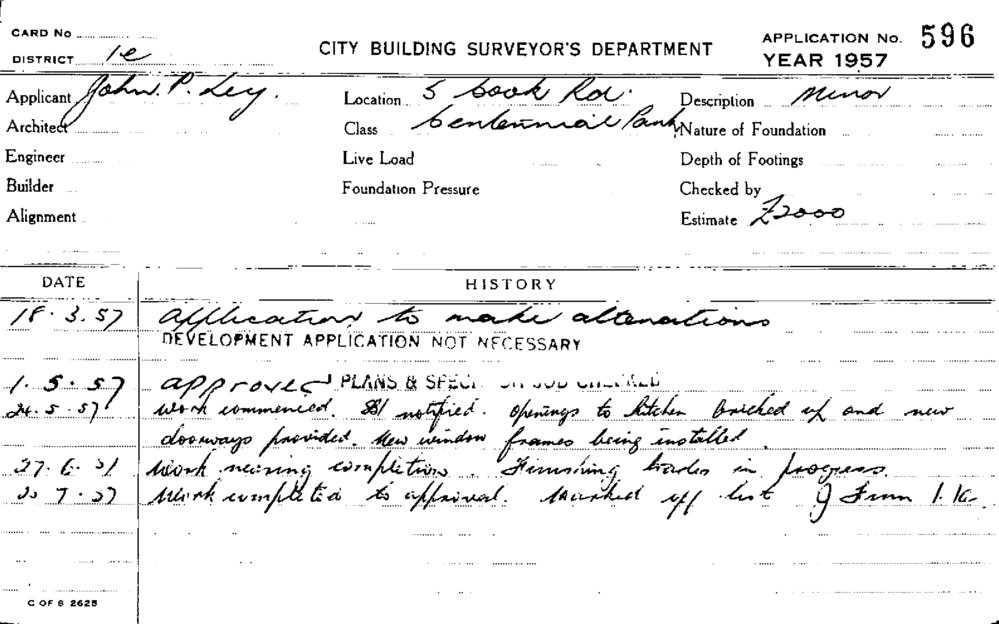 CARD No
DISTRICT 1e
CITY BUILDING SURVEYOR'S DEPARTMENT
APPLICATION No. 596
YEAR 1957
Applicant John. P. Ley.
Location 5 Cook Rd.
Description Minor
Architect
Class Centennial Park
Nature of Foundation
Engineer
Live Load
Depth of Footings
Builder
Foundation Pressure
Checked by
Alignment
Estimate £2000
DATE
HISTORY
18.3.57 Application to make alterations
DEVELOPMENT APPLICATION NOT NECESSARY
1.5.57 approved PLANS & SPECI ON JOB CHECKED
24.5.57 Work commenced. notified. Openings to kitchen bricked up and new
doorways provided. New window frames being installed.
27.6.57 Work nearing completion. Finishing trades in progress.
7.57 Work completed to approval. Marked off list
C OF S 2625